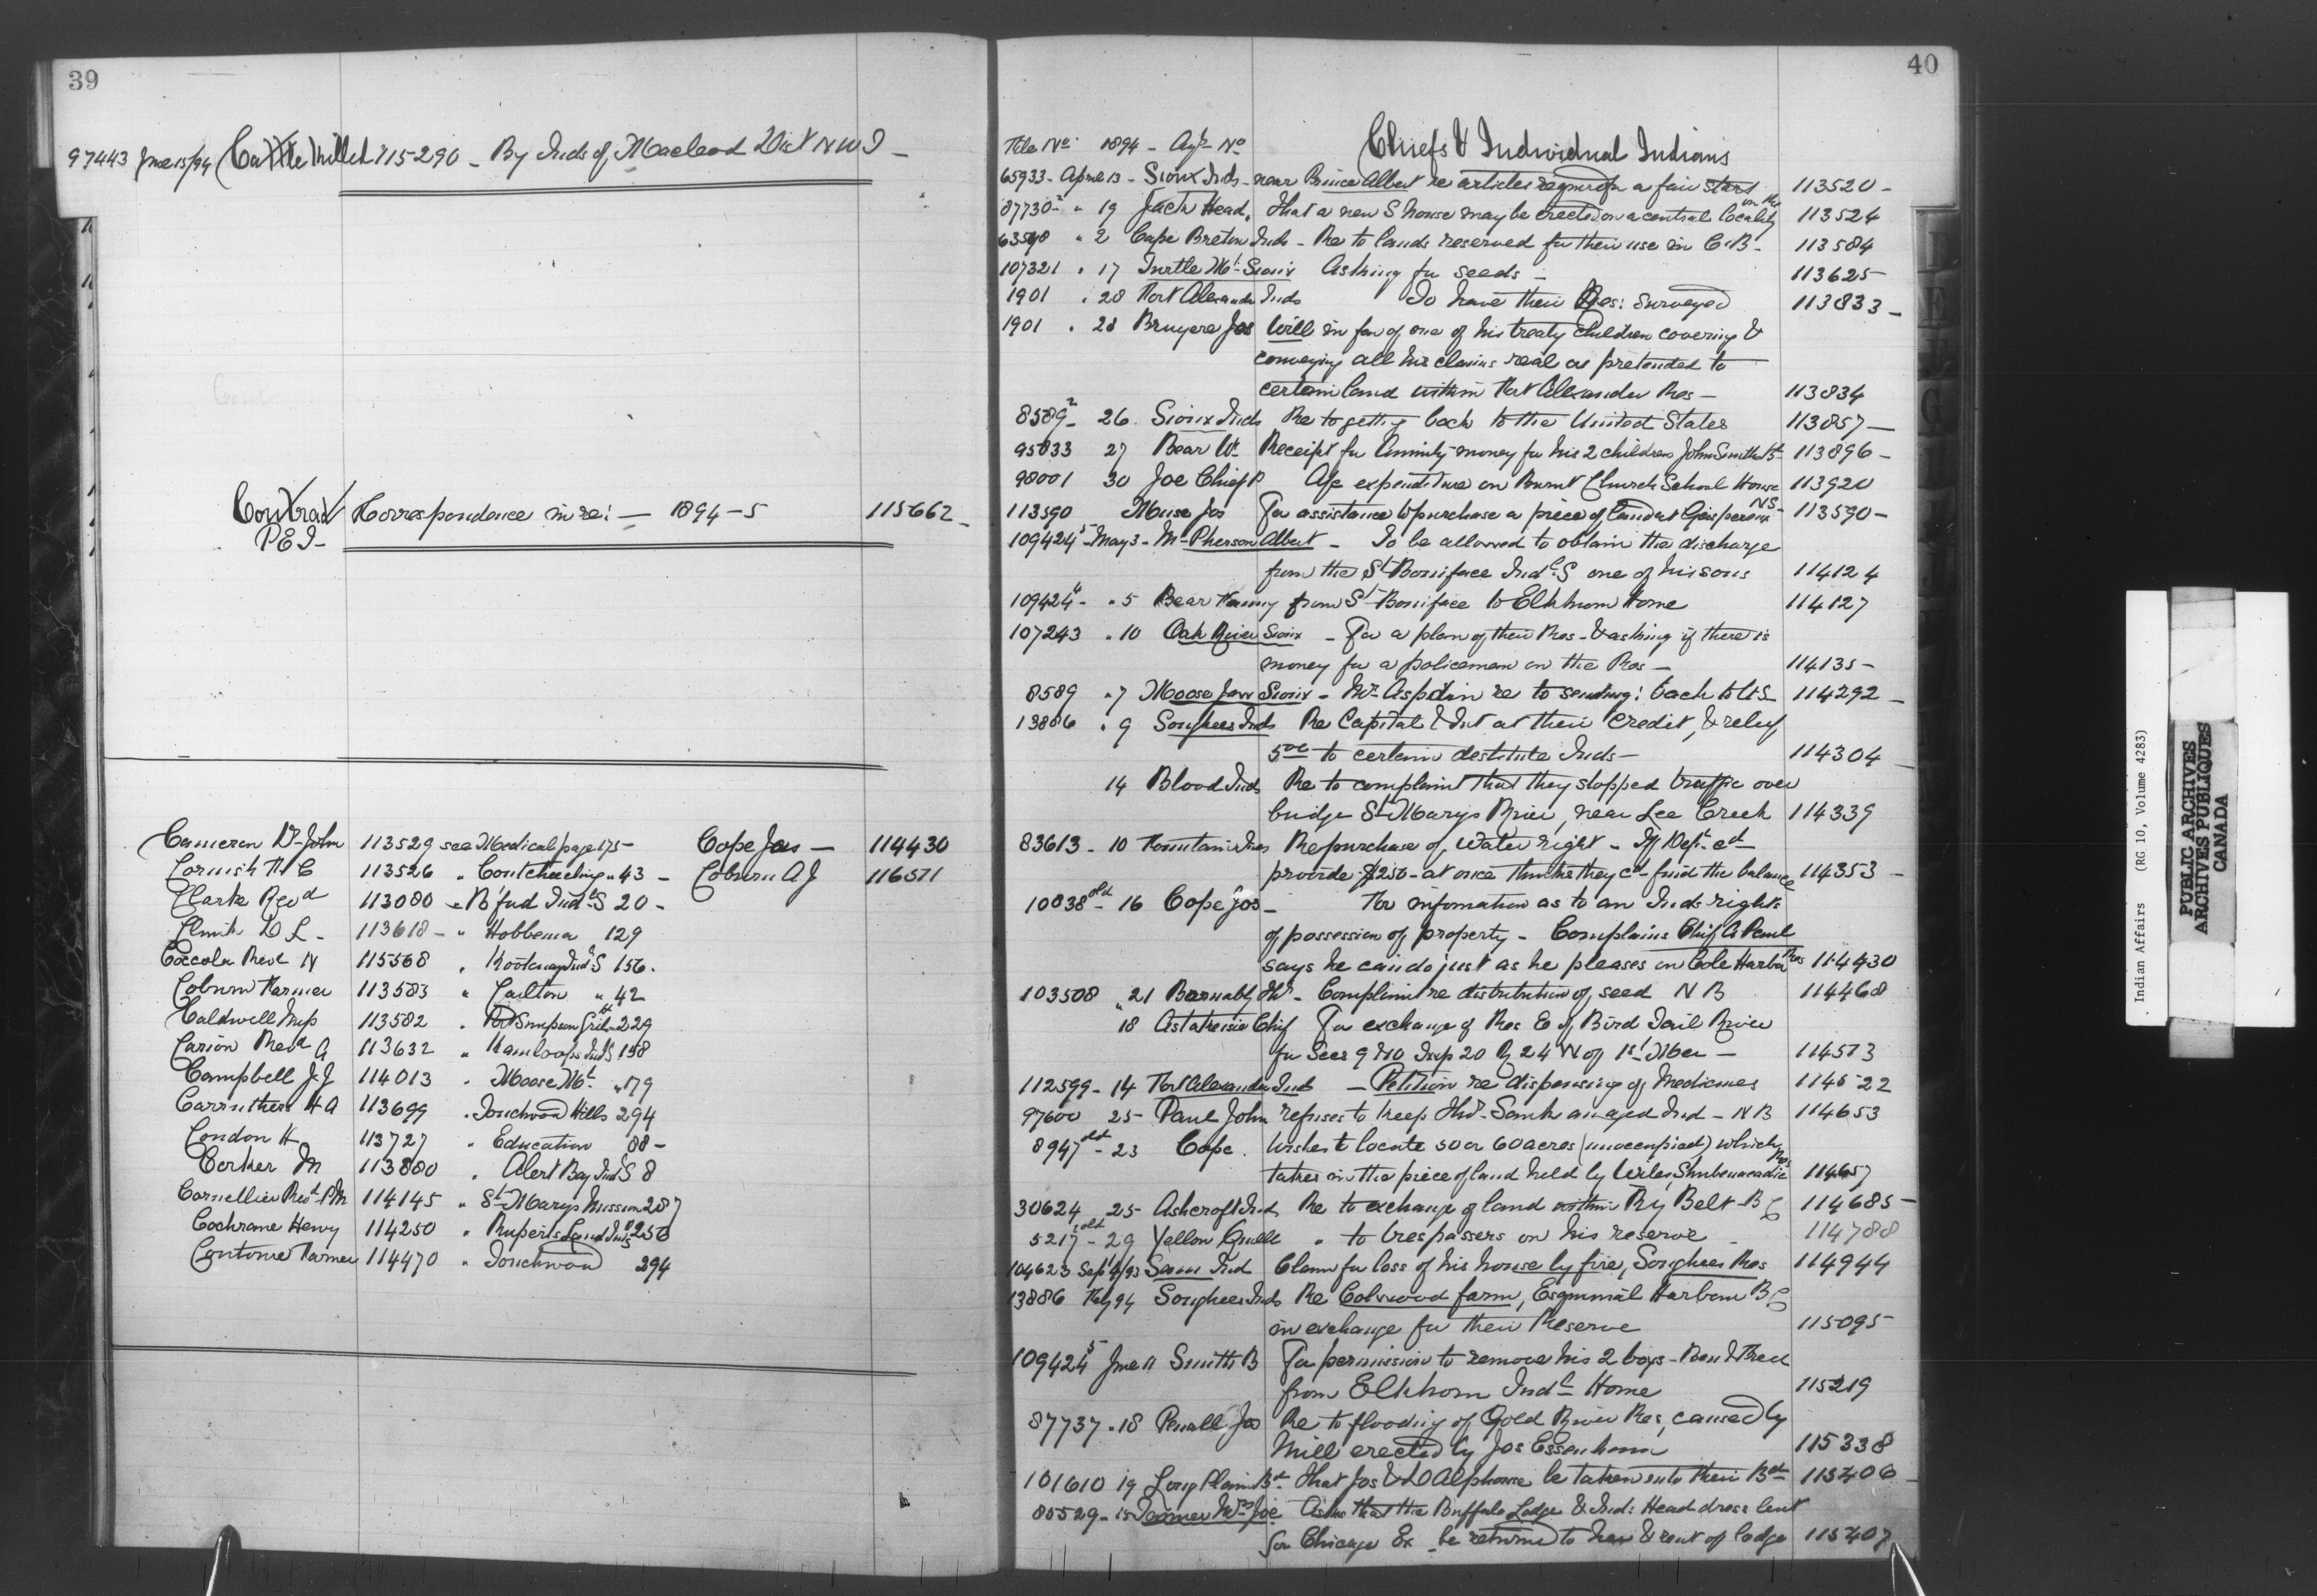 39
97443 June 15/94 Cattle Killed 115290 - By Inds of Macleod Dist N W T -
Contract Correspondence in re: - 1894-5 115662 -
P E I -
Cameron Dr John 113529 see Medical page 175 -
Cornish F C 113526 " Coutcheeching " 43 -
Clarke Revd 113080 " B'ford Indl S 20 -
Clink D L - 113618 - " Hobbema 129
Coccola Revd N 115568 " Kootenay Indl S 156.
Coburn Farmer 113583 " Carlton " 42
Caldwell Insp 113582 " Port Simpson Girls 229
Carion Revd A 113632 " Kamloops Indl S 158
Campbell J J 114013 " Moose Mt " 179
Carruthers H A 113699 " Touchwood Hills 294
London H 113727 " Education 88 -
Corker M 113880 " Alert Bay Indl S 8
Cornellier Revd P M 114145 " St Marys Mission 287
Cochrane Henry 114250 " Ruperts Land Indl S 256
Couture Farmer 114470 " Touchwood 294
Cope Jas - 114430
Coburn A J 116511
40
File No 1894 - Agt No Chiefs & Individual Indians
65933 - April 13 - Sioux Inds - near Prince Albert re articles required for a fair start 113520 -
87730 2 " 19 Jack Head, That a new S house may be erected on a central locality on Res 113524
63548 " 2 Cape Breton Inds - Re to lands reserved for their use in C.B - 113584
107321 " 17 Turtle Mt Sioux Asking for seeds - 113625
1901 " 28 Fort Alexander Inds To have their Res: surveyed 113833 -
1901 " 28 Bruyere Jos Will in fav of one of his treaty children covering &
conveying all his claims real or pretended to
certain land within Fort Alexander Res - 113834
8589 2 - 26 Sioux Inds Re to getting back to the United States 113857 -
95833 27 Bear Wm Receipt for Annuity money for his 2 children John Smiths Bd 113896 -
98001 30 Joe Chief P A/c expenditure on Burnt Church School House 113920
113590 Muse Jos For assistance to purchase a piece of land at Gaspereaux NS - 113590 -
109424 5 - May 3 - McPherson Albert - To be allowed to obtain the discharge
from the St Boniface Indl S one of his sons 114124
109424 4 - " 5 Bear Fanny from St Boniface to Elkhorn Home 114127
107243 " 10 Oak River Sioux - For a plan of their Res - & asking if there is
money for a policeman on the Res - 114135 -
8589 " 7 Moose Jaw Sioux - Mr Aspdin re to sending: back to US 114292 -
13886 " 9 Songhees Inds Re Capital & Int at their credit, & relief
500 to certain destitute Inds - 114304 -
14 Blood Inds Re to complaint that they stopped traffic over
bridge St Marys River, near Lee Creek 114339
83613 - 10 Fountain Inds Re purchase of water right - If Dept cd
provide $250 - at once thinks they cd find the balance 114353 -
10838 old - 16 Cope Jos - For information as to an Inds rights
of possession of property - Complains Chief A Paul
says he can do just as he pleases on Cole Harbor Res 114430
103508 " 21 Barnaby Thos - Complaint re distribution of seed N B 114468
" 18 Astakeesic Chief For exchange of Res E of Bird Tail River
for Secs 9 & 10 Twp 20 Rg 24 W of 1st Mer - 114513
112599 - 14 Fort Alexander Inds - Petition re dispensing of Medicines 114522
97600 25 - Paul John refuses to keep Thos Sank an aged Ind - N B 114653
8947 old - 23 Cope. Wishes to locate 50 or 60 acres (unoccupied) which
takes in the piece of land held by Wiles Shubenacadie Res 114657
30624 25 - Ashcroft Inds Re to exchange of land within Ry Belt - B C 114685 -
5217 old - 29 Yellow Quill " to trespassers on his reserve - 114788
104623 Sept 4/93 Sam Ind Claim for loss of his house by fire, Songhees Res 114944
13886 May 94 Songhees Inds Re Colwood farm, Esquimalt Harbour B C
in exchange for their Reserve 115095
109424 5 June 11 Smith B For permission to remove his 2 boys - Ben & Fred
from Elkhorn Indl Home 115219
87737 " 18 Penall Jos Re to flooding of Gold River Res, caused by
Mill erected by Jos Essenhaur 115338
101610 19 Long Plain Bd That Jos & D Alphonse be taken into their Bd 115406 -
85529 - 15 Joe Asks that the Buffalo Lodge & Ind: Head dress lent
for Chicago Ex - be returned to her & rent of lodge 115407
Indian Affairs (RG 10, Volume 4283)
PUBLIC ARCHIVES
ARCHIVES PUBLIQUES
CANADA